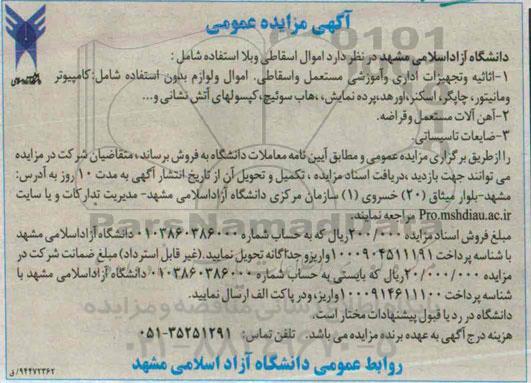 آگهی مزایده عمومی
دانشگاه آزاد اسلامی مشهد در نظر دارد اموال اسقاطی وبلا استفاده شامل:
۱-اثاثیه وتجهیزات اداری وآموزشی مستعمل واسقاطی. اموال ولوازم بدون استفاده شامل:کامپیوتر
ومانیتور، چاپگر، اسکنر،اورهد،پرده نمایش، ،هاب سوئیچ،کپسولهای آتش نشانی و...
۲-آهن آلات مستعمل وقراضه.
۳-ضایعات تاسیساتی.
را ازطریق برگزاری مزایده عمومی و مطابق آیین نامه معاملات دانشگاه به فروش برساند، متقاضیان شرکت در مزایده
می توانند جهت بازدید ،دریافت اسناد مزایده ، تکمیل و تحویل آن از تاریخ انتشار آگهی به مدت ۱۰ روز به آدرس:
مشهد-بلوار میثاق (۲۰) خسروی (۱) سازمان مرکزی دانشگاه آزاداسلامی مشهد- مدیریت تدارکات و یا سایت
Pro.mshdiau.ac.ir مراجعه نمایند.
مبلغ فروش اسناد مزایده ۲۰۰/۰۰۰ریال که به حساب شماره ۰۱۰۳۸۶۰۳۸۶۰۰۰ دانشگاه آزاداسلامی مشهد
با شناسه پرداخت ۱۰۰۰۹۰۴۵۱۱۱۹۱واریزوجداگانه تحویل نمایید.(غیر قابل استرداد) مبلغ ضمانت شرکت در
مزایده ۲۰/۰۰۰/۰۰۰ریال که بایستی به حساب شماره ۰۱۰۳۸۶۰۳۸۶۰۰۰ دانشگاه آزاداسلامی مشهد با
شناسه پرداخت ۱۰۰۰۹۱۴۶۱۱۱۰۰واریز،ودر پاکت الف ارسال نمایید.
دانشگاه در رد یا قبول پیشنهادات مختار است.
هزینه درج آگهی به عهده برنده مزایده می باشد. تلفن تماس: ۳۵۲۵۱۲۹۱-۰۵۱
روابط عمومی دانشگاه آزاد اسلامی مشهد
۹۴۴۷۲۳۶۲/ق
ParsNamadData